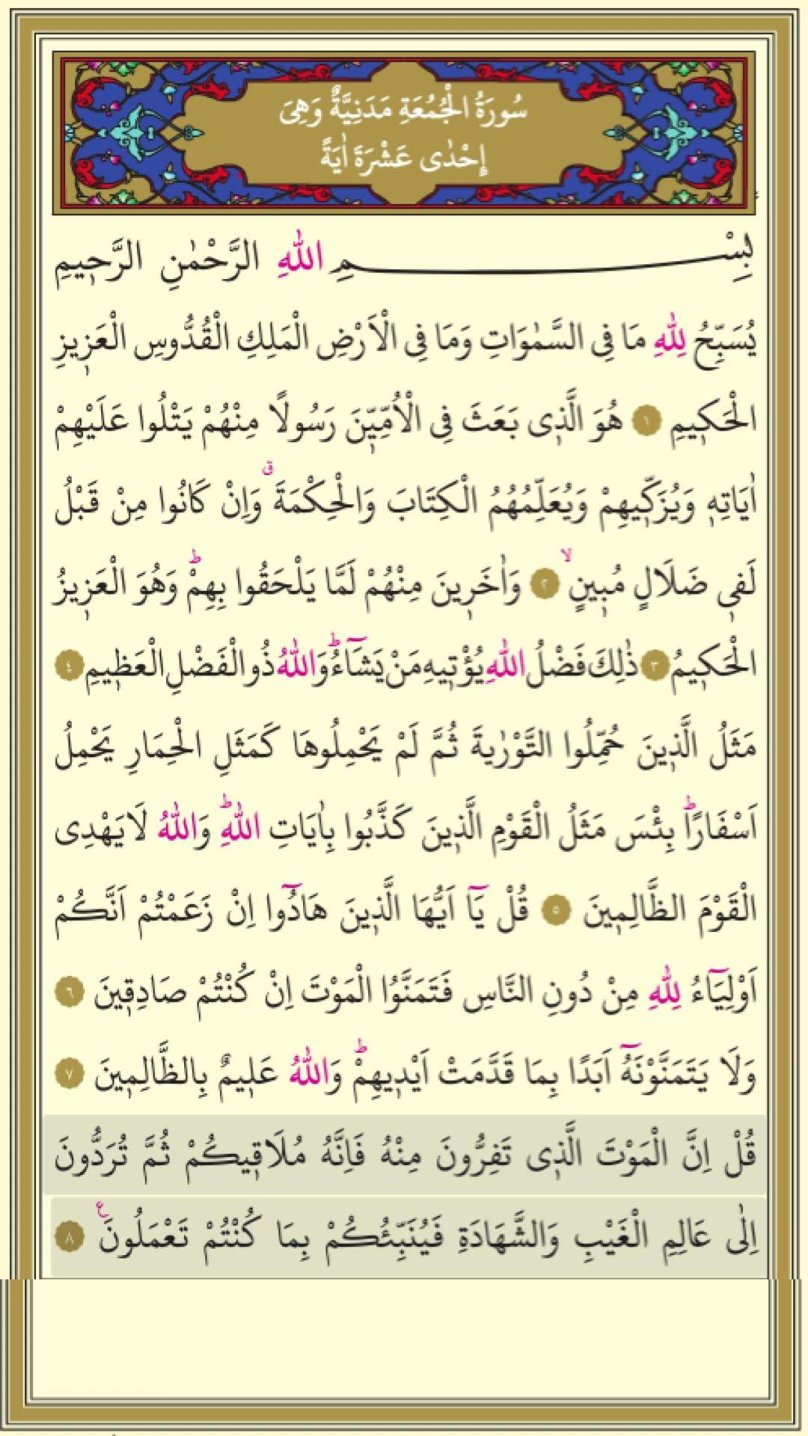 سُورَةُ الْجُمُعَةِ مَدَنِيَّةٌ وَهِىَ
اِحْدٰى عَشْرَةَ اٰيَةً
بِسْــــــــــمِ اللّٰهِ الرَّحْمٰنِ الرَّحٖيمِ
يُسَبِّحُ لِلّٰهِ مَا فِى السَّمٰوَاتِ وَمَا فِى الْاَرْضِ الْمَلِكِ الْقُدُّوسِ الْعَزٖيزِ
الْحَكٖيمِ ١ هُوَ الَّذٖى بَعَثَ فِى الْاُمِّيّٖنَ رَسُولًا مِنْهُمْ يَتْلُوا عَلَيْهِمْ
اٰيَاتِهٖ وَيُزَكّٖيهِمْ وَيُعَلِّمُهُمُ الْكِتَابَ وَالْحِكْمَةَ ق وَاِنْ كَانُوا مِنْ قَبْلُ
لَفٖى ضَلَالٍ مُبٖينٍ ۙ ٢ وَاٰخَرٖينَ مِنْهُمْ لَمَّا يَلْحَقُوا بِهِمْ ؕ وَهُوَ الْعَزٖيزُ
الْحَكٖيمُ ٣ ذٰلِكَ فَضْلُ اللّٰهِ يُؤْتٖيهِ مَنْ يَشَٓاءُ ؕ وَاللّٰهُ ذُوالْفَضْلِ الْعَظٖيمِ ٤
مَثَلُ الَّذٖينَ حُمِّلُوا التَّوْرٰيةَ ثُمَّ لَمْ يَحْمِلُوهَا كَمَثَلِ الْحِمَارِ يَحْمِلُ
اَسْفَارًا ؕ بِئْسَ مَثَلُ الْقَوْمِ الَّذٖينَ كَذَّبُوا بِاٰيَاتِ اللّٰهِ ؕ وَاللّٰهُ لَا يَهْدِى
الْقَوْمَ الظَّالِمٖينَ ٥ قُلْ يَٓا اَيُّهَا الَّذٖينَ هَادُٓوا اِنْ زَعَمْتُمْ اَنَّكُمْ
اَوْلِيَٓاءُ لِلّٰهِ مِنْ دُونِ النَّاسِ فَتَمَنَّوُا الْمَوْتَ اِنْ كُنْتُمْ صَادِقٖينَ ٦
وَلَا يَتَمَنَّوْنَهُٓ اَبَدًا بِمَا قَدَّمَتْ اَيْدٖيهِمْ ؕ وَاللّٰهُ عَلٖيمٌ بِالظَّالِمٖينَ ٧
قُلْ اِنَّ الْمَوْتَ الَّذٖى تَفِرُّونَ مِنْهُ فَاِنَّهُ مُلَاقٖيكُمْ ثُمَّ تُرَدُّونَ
اِلٰى عَالِمِ الْغَيْبِ وَالشَّهَادَةِ فَيُنَبِّئُكُمْ بِمَا كُنْتُمْ تَعْمَلُونَ ع ٨